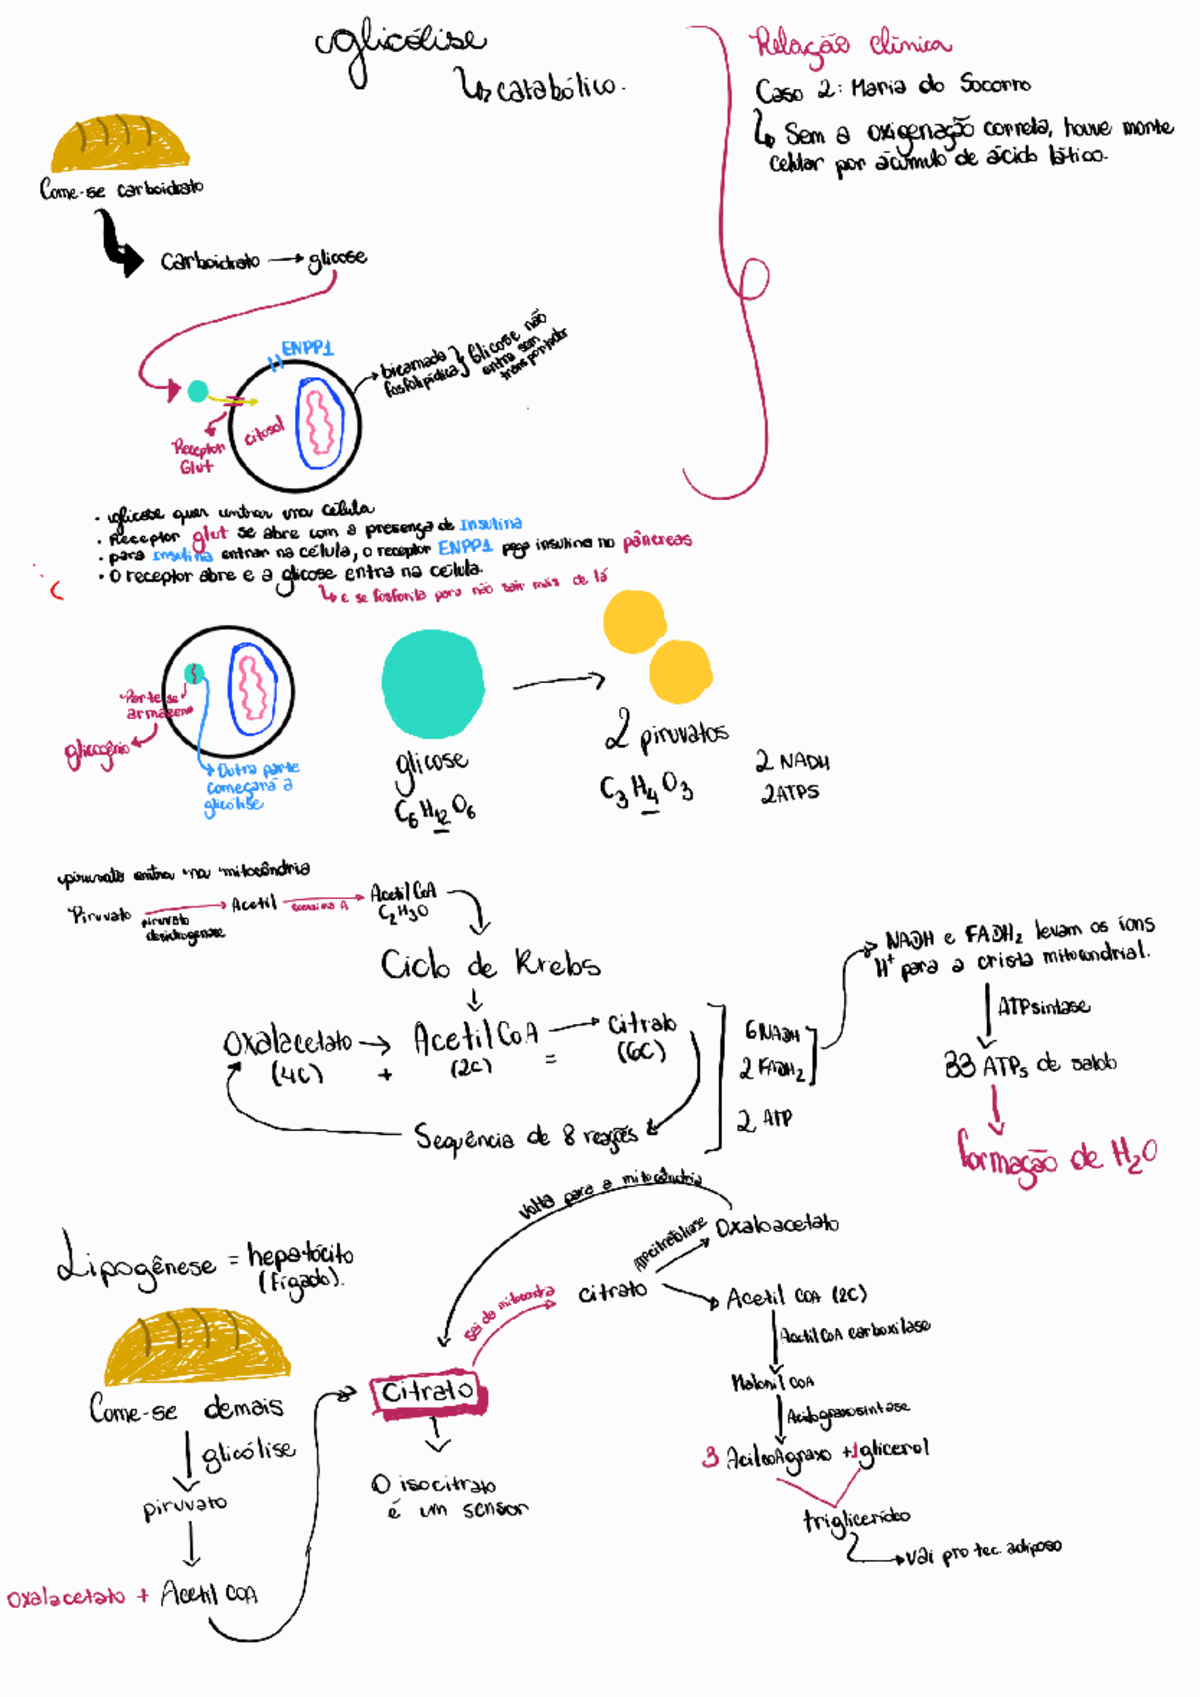 glicólise
↳ catabólico.
Relação clínica
Caso 2: Maria do Socorro
↳ Sem a oxigenação correta, houve morte
celular por acúmulo de ácido lático.
Come-se carboidrato
Carboidrato → glicose
ENPP1
bicamada
fosfolipídica} Glicose não
entra sem
transportador
Receptor
Glut
citosol
• glicose quer entrar na célula
• Receptor glut se abre com a presença de insulina
• para insulina entrar na célula, o receptor ENPP1 pega insulina no pâncreas
• O receptor abre e a glicose entra na celula.
↳ e se fosforila para não sair mais de lá
Parte se
armazena
glicogênio
→ Outra parte
começará a
glicólise
glicose
C6H12O6
2 piruvatos
C3H4O3
2 NADH
2 ATPS
piruvato entra na mitocôndria
Piruvato → Acetil → Acetil CoA
piruvato
desidrogenase
coenzima A
C2H3O
Ciclo de Krebs
Oxalacetato → Acetil CoA → citrato
(4C) + (2C) = (6C)
Sequência de 8 reações
6 NADH
2 FADH2
2 ATP
NADH e FADH2 levam os íons
H+ para a crista mitocondrial.
ATPsintase
33 ATPs de saldo
Formação de H2O
Lipogênese = hepatócito
(Fígado).
Come-se demais
glicólise
piruvato
Oxalacetato + Acetil COA
Citrato
O isocitrato
é um sensor
volta para a mitocôndria
sai da mitocondria
citrato
ATPcitratoliase
Oxaloacetato
Acetil COA (2C)
Acetil CoA carboxilase
Malonil COA
Acidograxosintase
3 Acilcoagraxo + 1glicerol
triglicerídeo
→ vai pro tec. adiposo